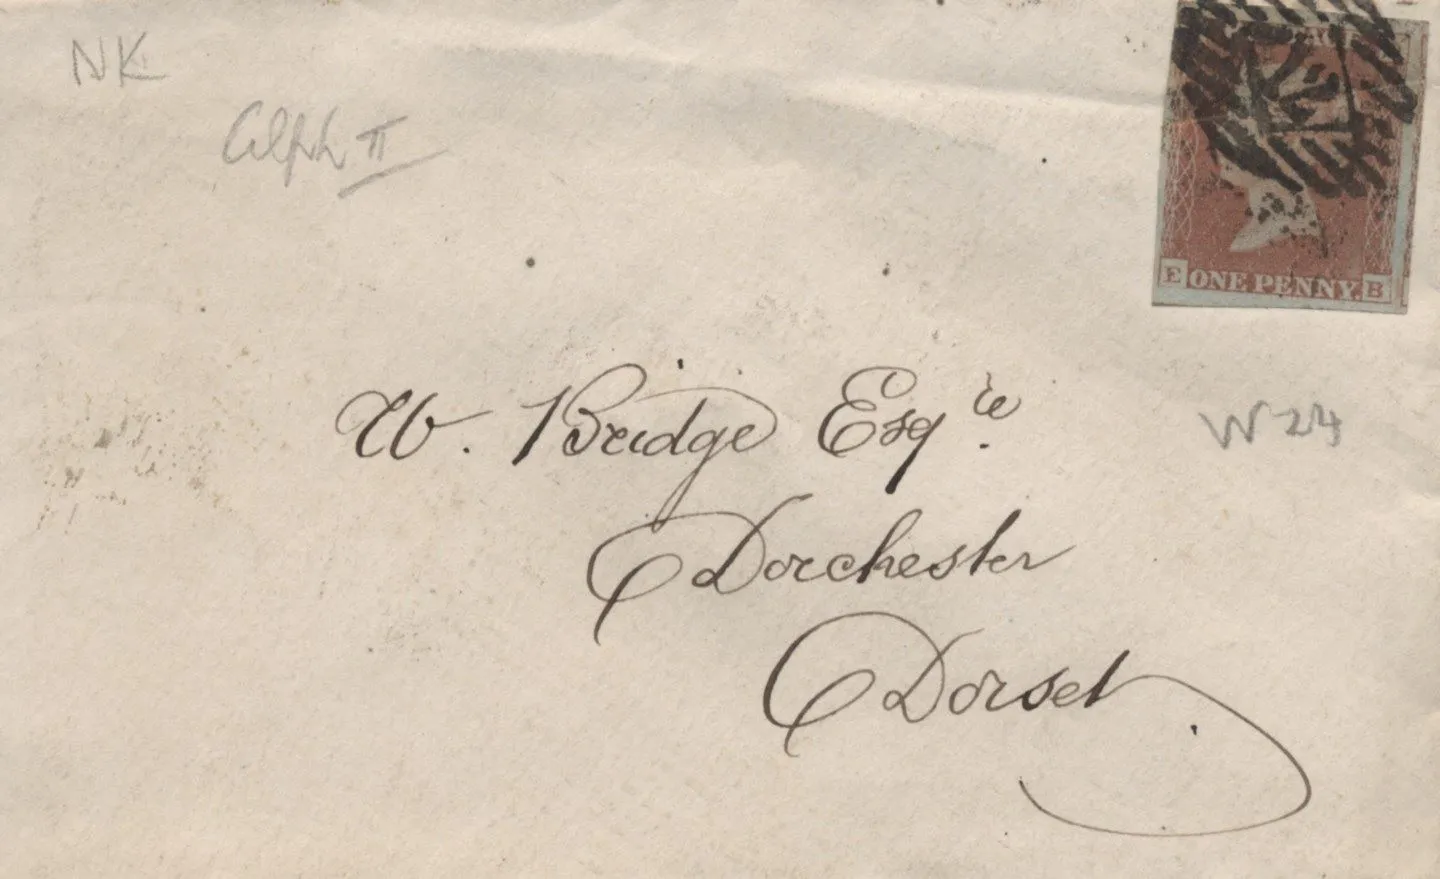 NK
Alph II
E ONE PENNY. B
W. Bridge Esqre.
W 24
Dorchester
Dorset